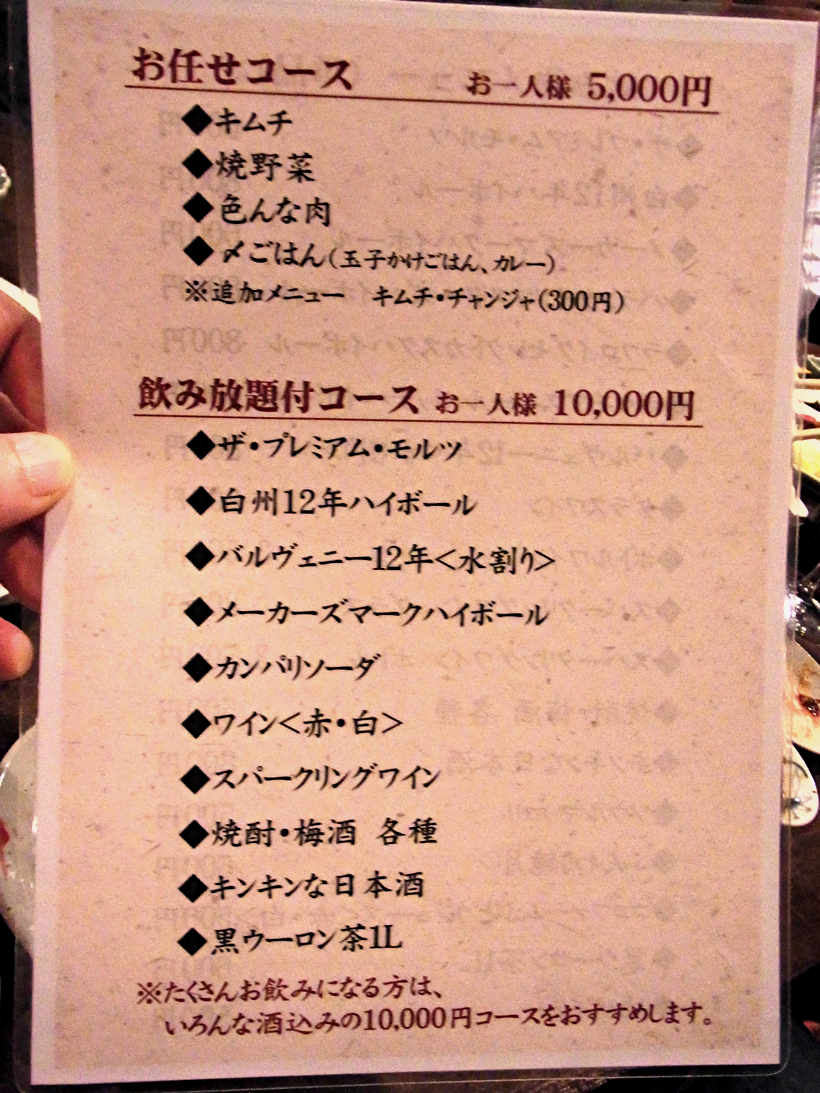 お任せコース お一人様 5,000円
◆キムチ
◆焼野菜
◆色んな肉
◆〆ごはん(玉子かけごはん、カレー)
※追加メニュー キムチ・チャンジャ(300円)
飲み放題付コース お一人様 10,000円
◆ザ・プレミアム・モルツ
◆白州12年ハイボール
◆バルヴェニー12年<水割り>
◆メーカーズマークハイボール
◆カンパリソーダ
◆ワイン<赤・白>
◆スパークリングワイン
◆焼酎・梅酒 各種
◆キンキンな日本酒
◆黒ウーロン茶1L
※たくさんお飲みになる方は、
いろんな酒込みの10,000円コースをおすすめします。